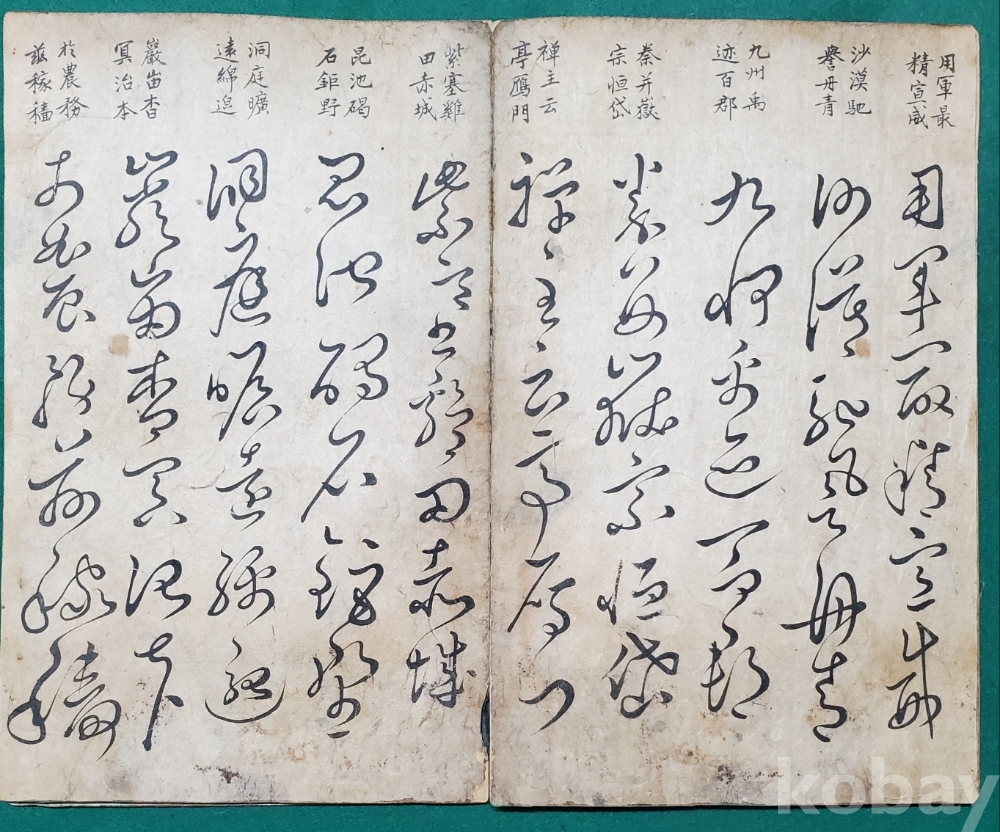 用軍最
精宣威
用軍最精宣威
沙漠馳
譽丹青
沙漠馳譽丹青
九州禹
迹百郡
九州禹迹百郡
秦并嶽
宗恒岱
秦并嶽宗恒岱
禅主云
亭鴈門
禅主云亭鴈門
紫塞雞
田赤城
紫塞雞田赤城
昆池碣
石鉅野
昆池碣石鉅野
洞庭曠
遠綿邈
洞庭曠遠綿邈
巖峀杳
冥治本
巖峀杳冥治本
於農務
玆稼穡
於農務玆稼穡
kobay